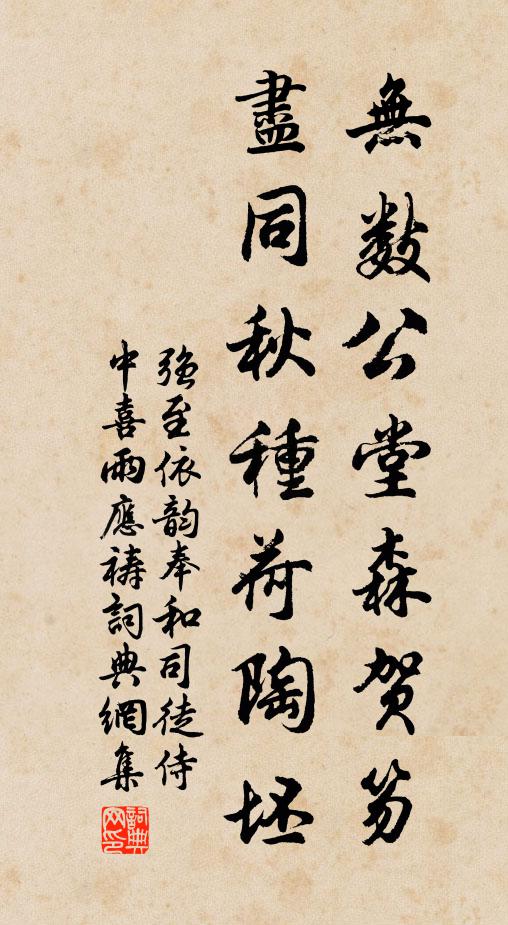 無數公堂森賀笏
盡同秋種荷陶坯
強至依韵奉和司徒侍
中喜雨應禱詞典網集
詞典
网印